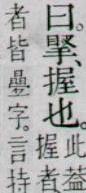 曰。掔、握也。
此蓋
握者
者皆疊字。言持